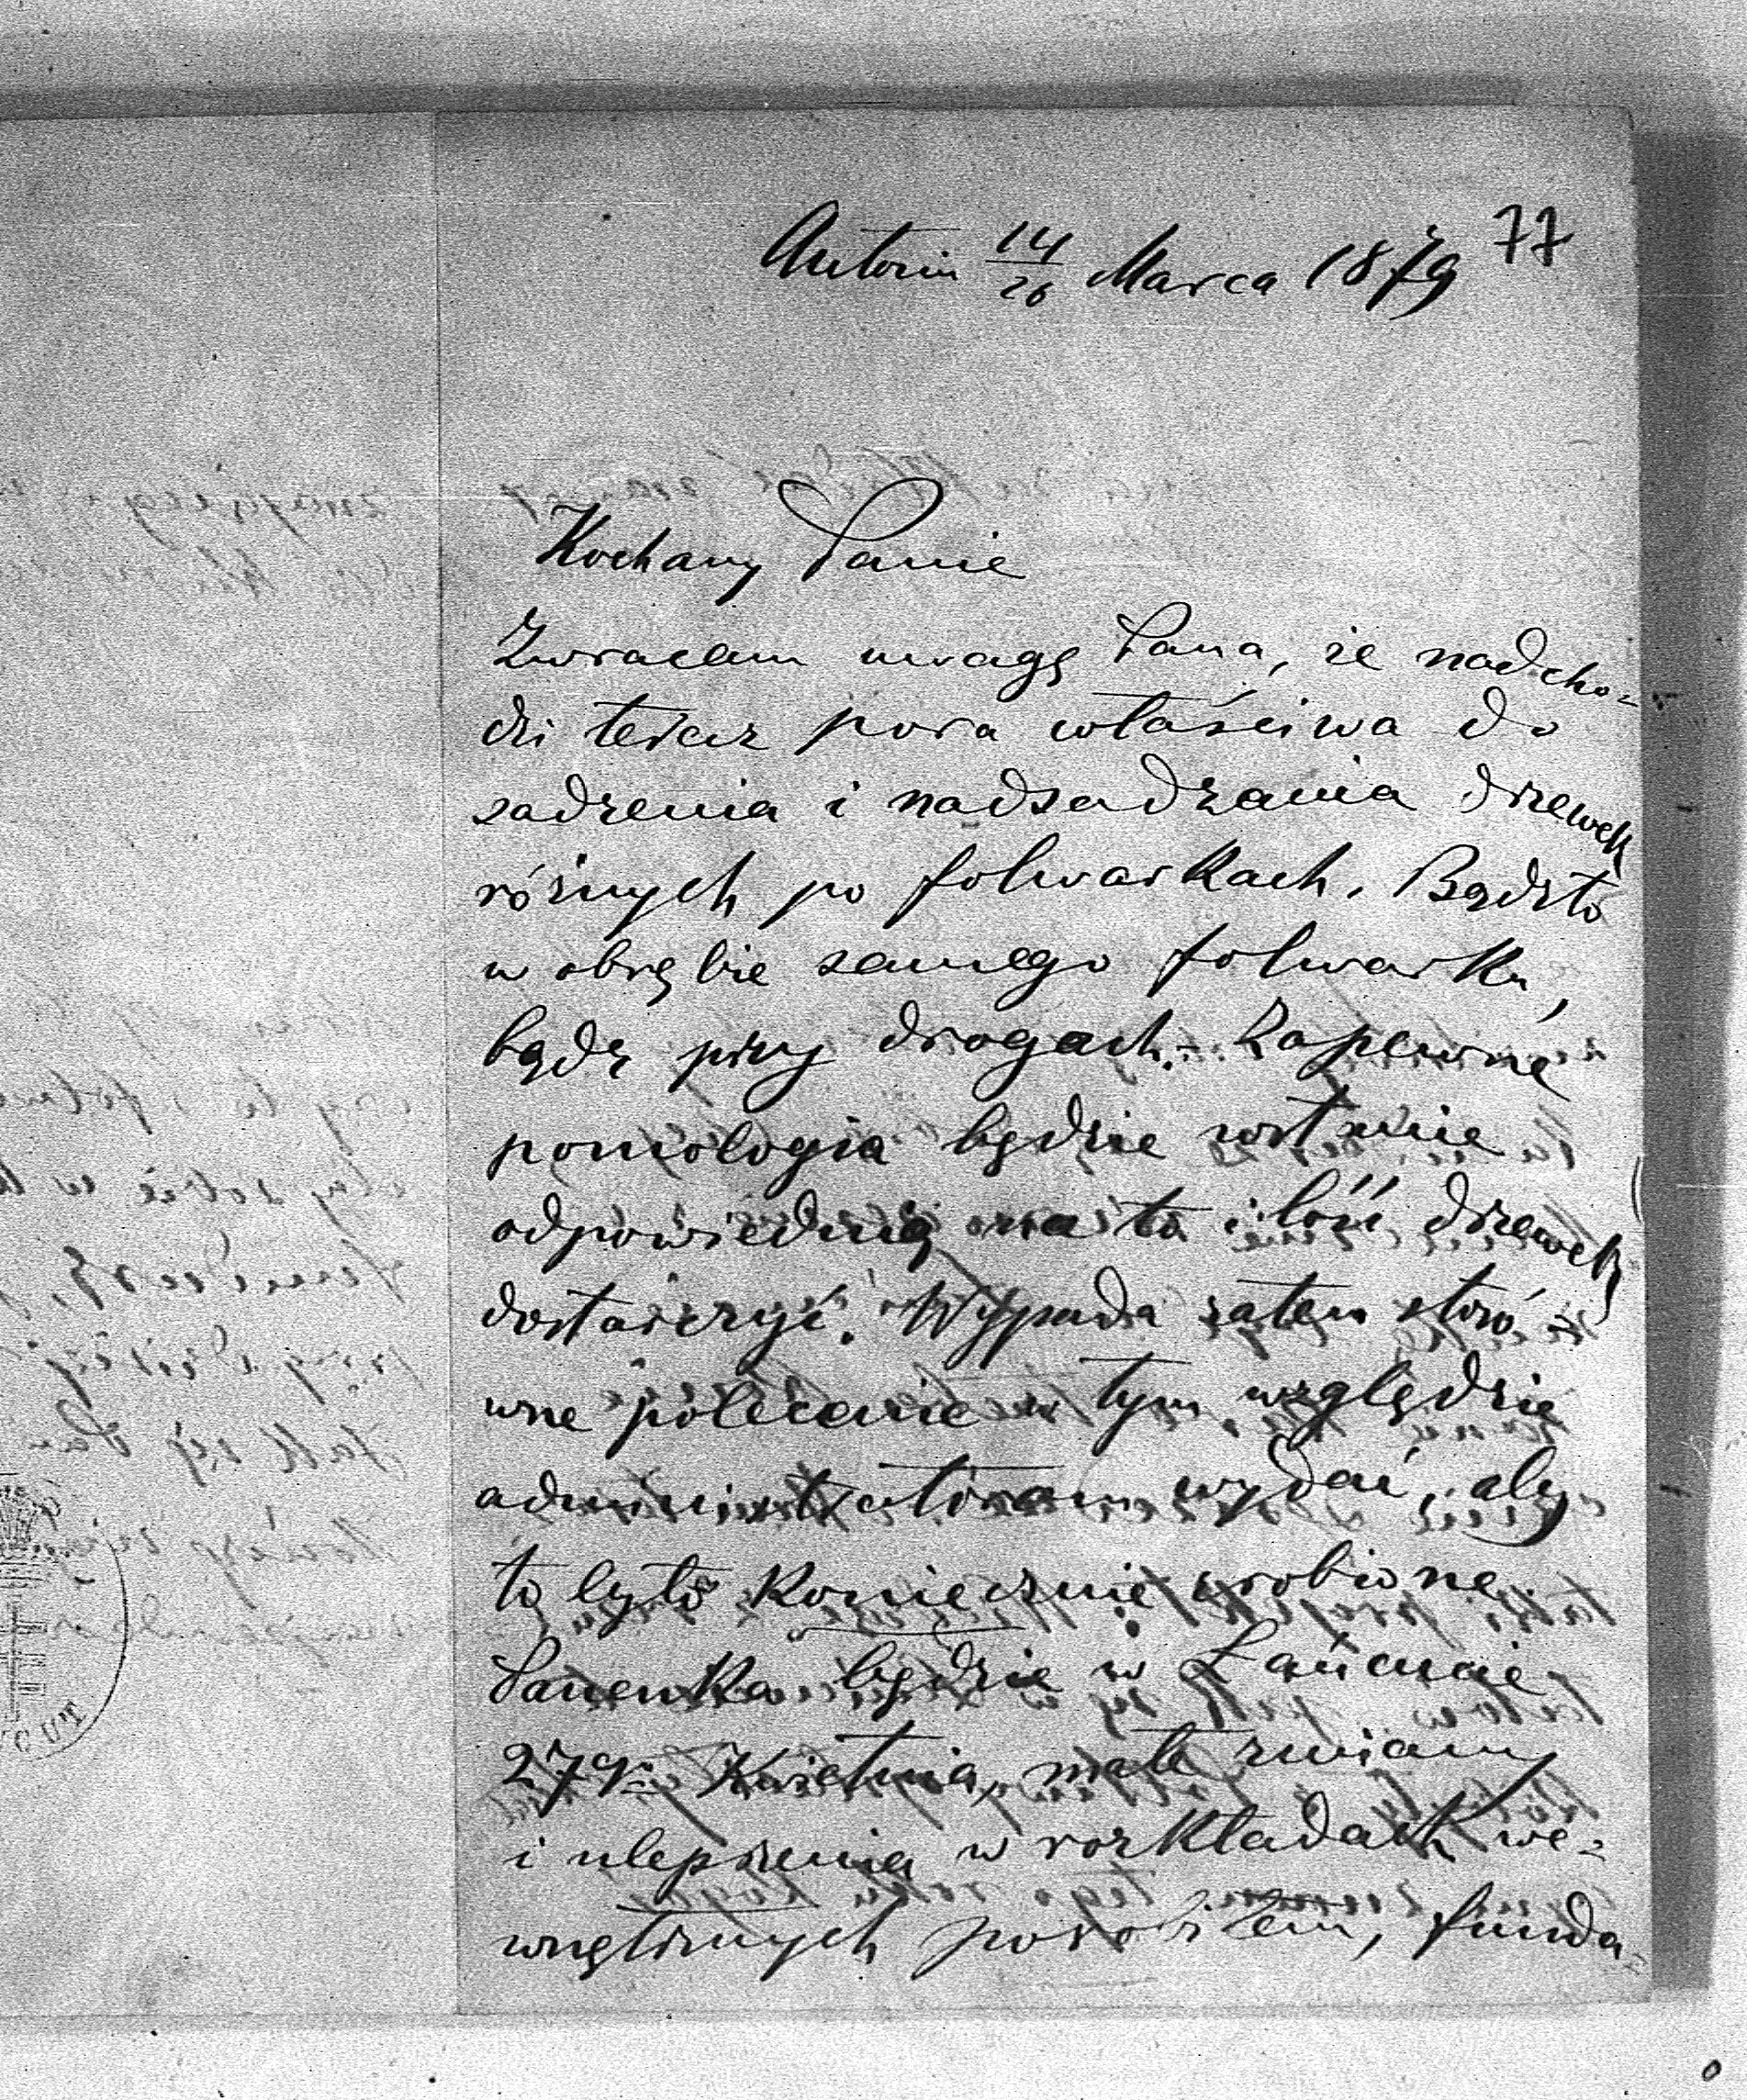 Antonin 14/26 Marca 1879 77
Kochany Panie
Zwracam uwagę Pana, że nadcho-
dzi teraz pora właściwa do
sadzenia i nadsadzania drzewek
różnych po folwarkach. Bądźto
w obrębie samego folwarku,
bądź przy drogach. Zapewne
pomologia będzie w stanie
odpowiednią na to ilość drzewek
dostarczyć. Wypada zatem stoso-
wne polecenie w tym względzie
administratorom wydać, aby
to było koniecznie zrobione.
będzie w Łańcucie
27go Kwietnia, małe zmiany
i ulepszenia w rozkładach we-
wnętrznych porobiłem, funda-